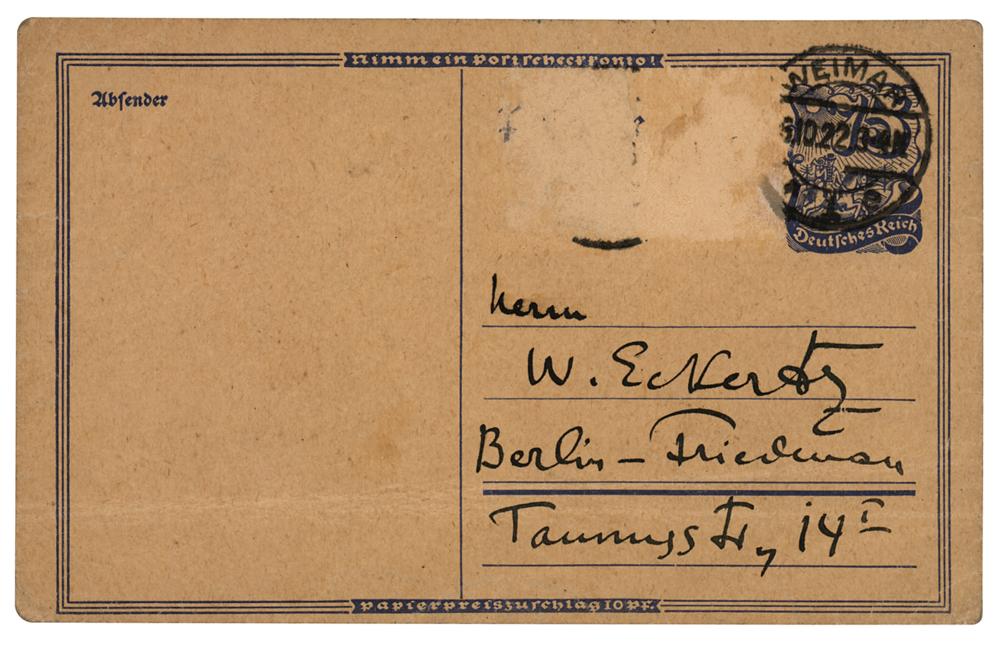 Nimm ein Postscheckkonto!
Absender
WEIMAR
10.22.3-4N
75
1 e
Deutsches Reich
Herrn
W. Eckertz
Berlin – Friedenau
Taunusstr, 14 I
Papierpreiszuschlag 10 Pf.